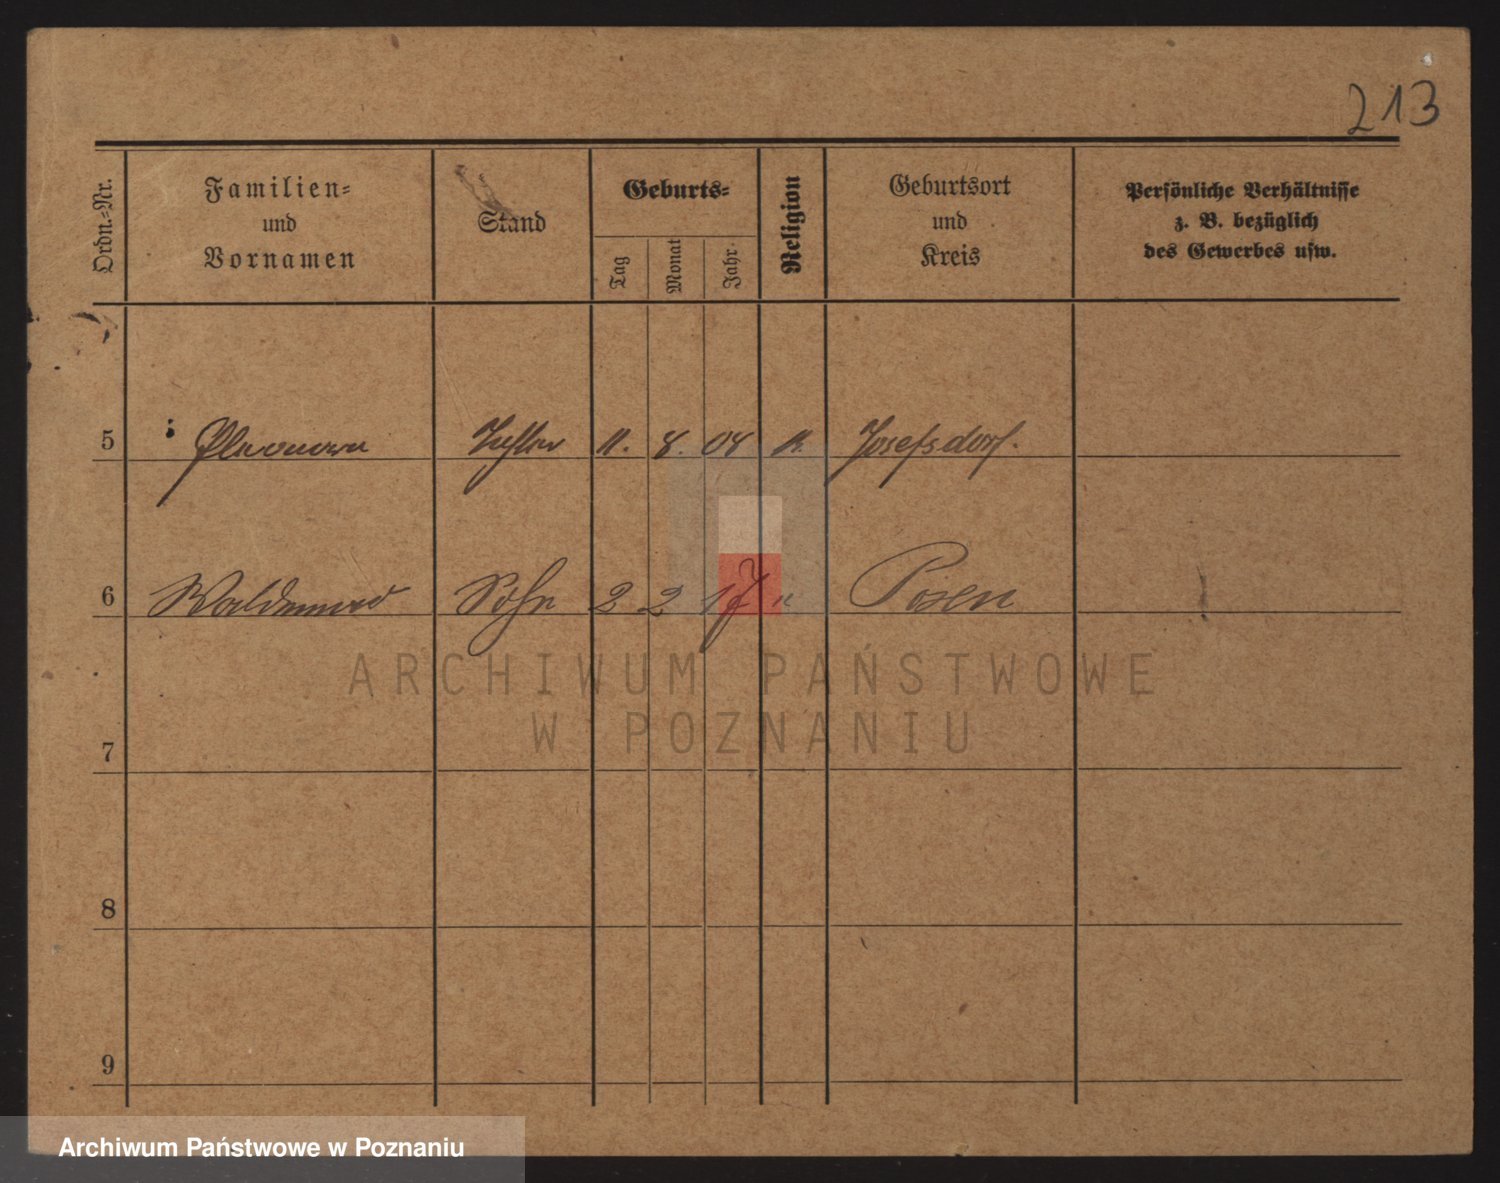 213
Ordn.-Nr.
Familien-
und
Vornamen
Stand
Geburts-
Tag
Monat
Jahr.
Religion
Geburtsort
und
Kreis
Persönliche Verhältnisse
z. B. bezüglich
des Gewerbes usw.
5 Eleonora Tochter 11. 8. 08 k. Josefsdorf.
6 Waldemar Sohn 2 2 17 " Posen
ARCHIWUM PAŃSTWOWE
W POZNANIU
7
8
9
Archiwum Państwowe w Poznaniu